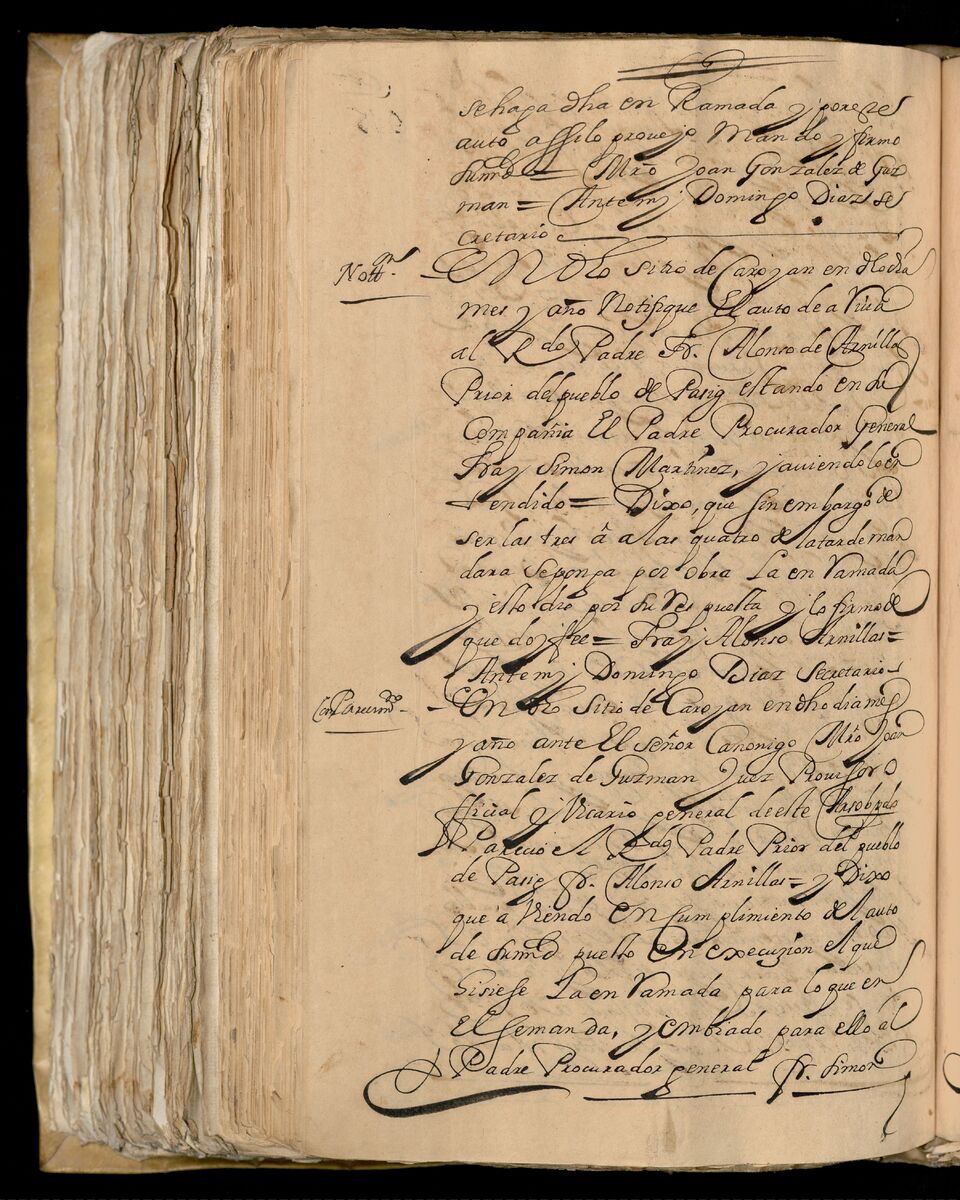 se haga dha en Ramada y por este
auto assi lo proveyo Mando y firmo
su md = Mro Joan Gonzalez de Guz
man = Ante mj Domingo Diaz se
cretario
Nottn.
En dho sitio de Caroyan en dho dia
mes y año Notifique El auto de arriva
al Rdo Padre Fr. Alonso de Arnillas
Prior del pueblo de Pasig estando en su
Compañia El Padre Procurador General
Fray Simon Martinez, y aviendolo en
tendido = Dixo, que sin embargo de
ser las tres â a las quatro de la tarde man
dara se ponga por obra La en Ramada
y esto dio por su Respuesta y lo firmo de
que doy fee = Fray Alonso Arnillas =
Ante mj Domingo Diaz Secretario
En dho Sitio de Caroyan en dho dia mes
y año ante El señor Canonigo Mro Joan
Gonzalez de Guzman Juez Provisor o
fficial y Vicario general de este Arsobpdo
Parecio el Rdo Padre Prior del pueblo
de Pasig fr. Alonso Arnillas = y Dixo
que aviendo en cumplimiento del auto
de su md puesto en execuzion el que
hisiese La en Ramada para lo que en
El se manda, y embiado para ello al
Padre Procurador general fr. Simon